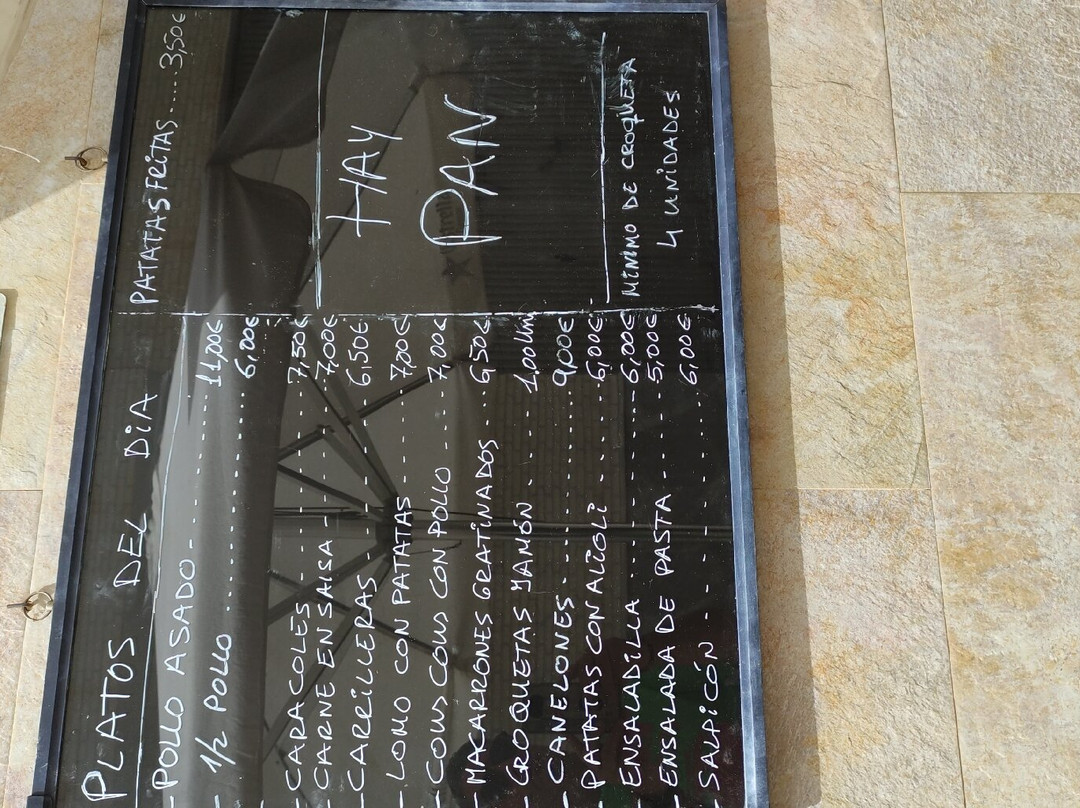 PLATOS DEL DIA
- POLLO ASADO ........ 11,00€
- 1/2 POLLO ........ 6,00€
- CARACOLES ........ 7,50€
- CARNE EN SALSA ........ 7,00€
- CARRILLERAS ........ 6,50€
- LOMO CON PATATAS ........ 7,00€
- COUS COUS CON POLLO .... 7,00€
- MACARRONES GRATINADOS ... 6,50€
- CROQUETAS JAMÓN ..... 1.00
- CANELONES ........ 9,00€
PATATAS CON ALIOLI ........ 6,00€
- ENSALADILLA ........ 6,00€
- ENSALADA DE PASTA ..... 5,00€
- SALPICÓN ........ 6,00€
PATATAS FRITAS ..... 3,50€
HAY
PAN
MINIMO DE CROQUETA
4 UNIDADES